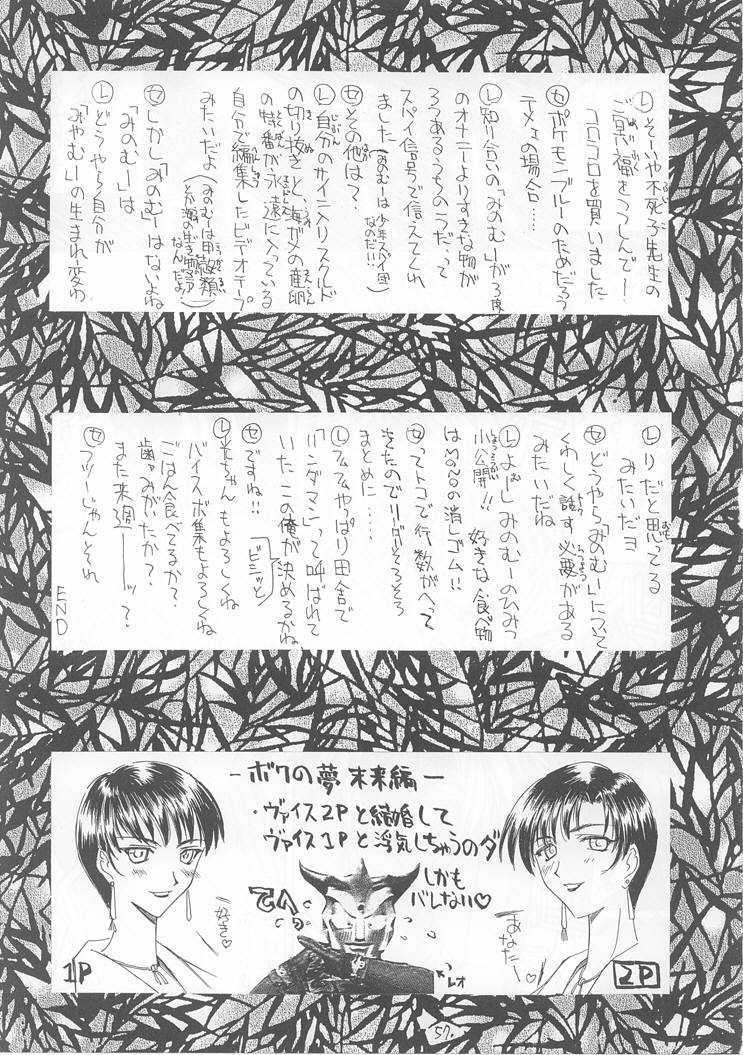 Ⓛそーいや不死子先生の
ご冥福をつつしんでー
コロコロを買いました
㊛ポケモンブルーのためだろう
テメェの場合……
Ⓛ知り合いの「みのむー」が3度
のオナニーよりすきな物が
3つあるうちの1つだって
スパイ信号で伝えてくれ
ました(みのむーは少年スパイ団なのだ!!)
㊛その他は?
Ⓛ自分のサイン入りスクルド
の切り抜きと、海ガメの産卵
の特番がえい遠に入っている
自分で編集したビデオテープ
みたいだよ(みのむーは甲殻類とか海の生き物マニアなんだよ)
㊛しかし「みのむー」はないよね
「みのむー」は
Ⓛどうやら自分が
「みやむー」の生まれ変わ
Ⓛりだと思ってる
みたいだヨ
㊛どうやら「みのむー」について
くわしく話す必要がある
みたいだね
Ⓛよーしみのむーのひみつ
小公開!! 好きな食べ物
はMONOの消しゴム!!
㊛ってトコで行数がへって
きたのでリーダーそろそろ
まとめに……
Ⓛフムフムやっぱり田舎で
「バンダマン」って叫ばれて
いた この俺が決めるがね
㊛ですね!! ビシッと
Ⓛそちゃんもよろしくね
バイスペボ集もよろしくね
ごはん食べてるか?
歯ァみがたか?
また来週ーーッ?
㊛フツーじゃんそれ
END
-ボクの夢 未来編-
・ヴァイス2Pと結婚して
ヴァイス1Pと浮気しちゃうのダ
しかも
バレない♡
てへっ
好き♡
あなたー♡
レオ
1P
2P
57.